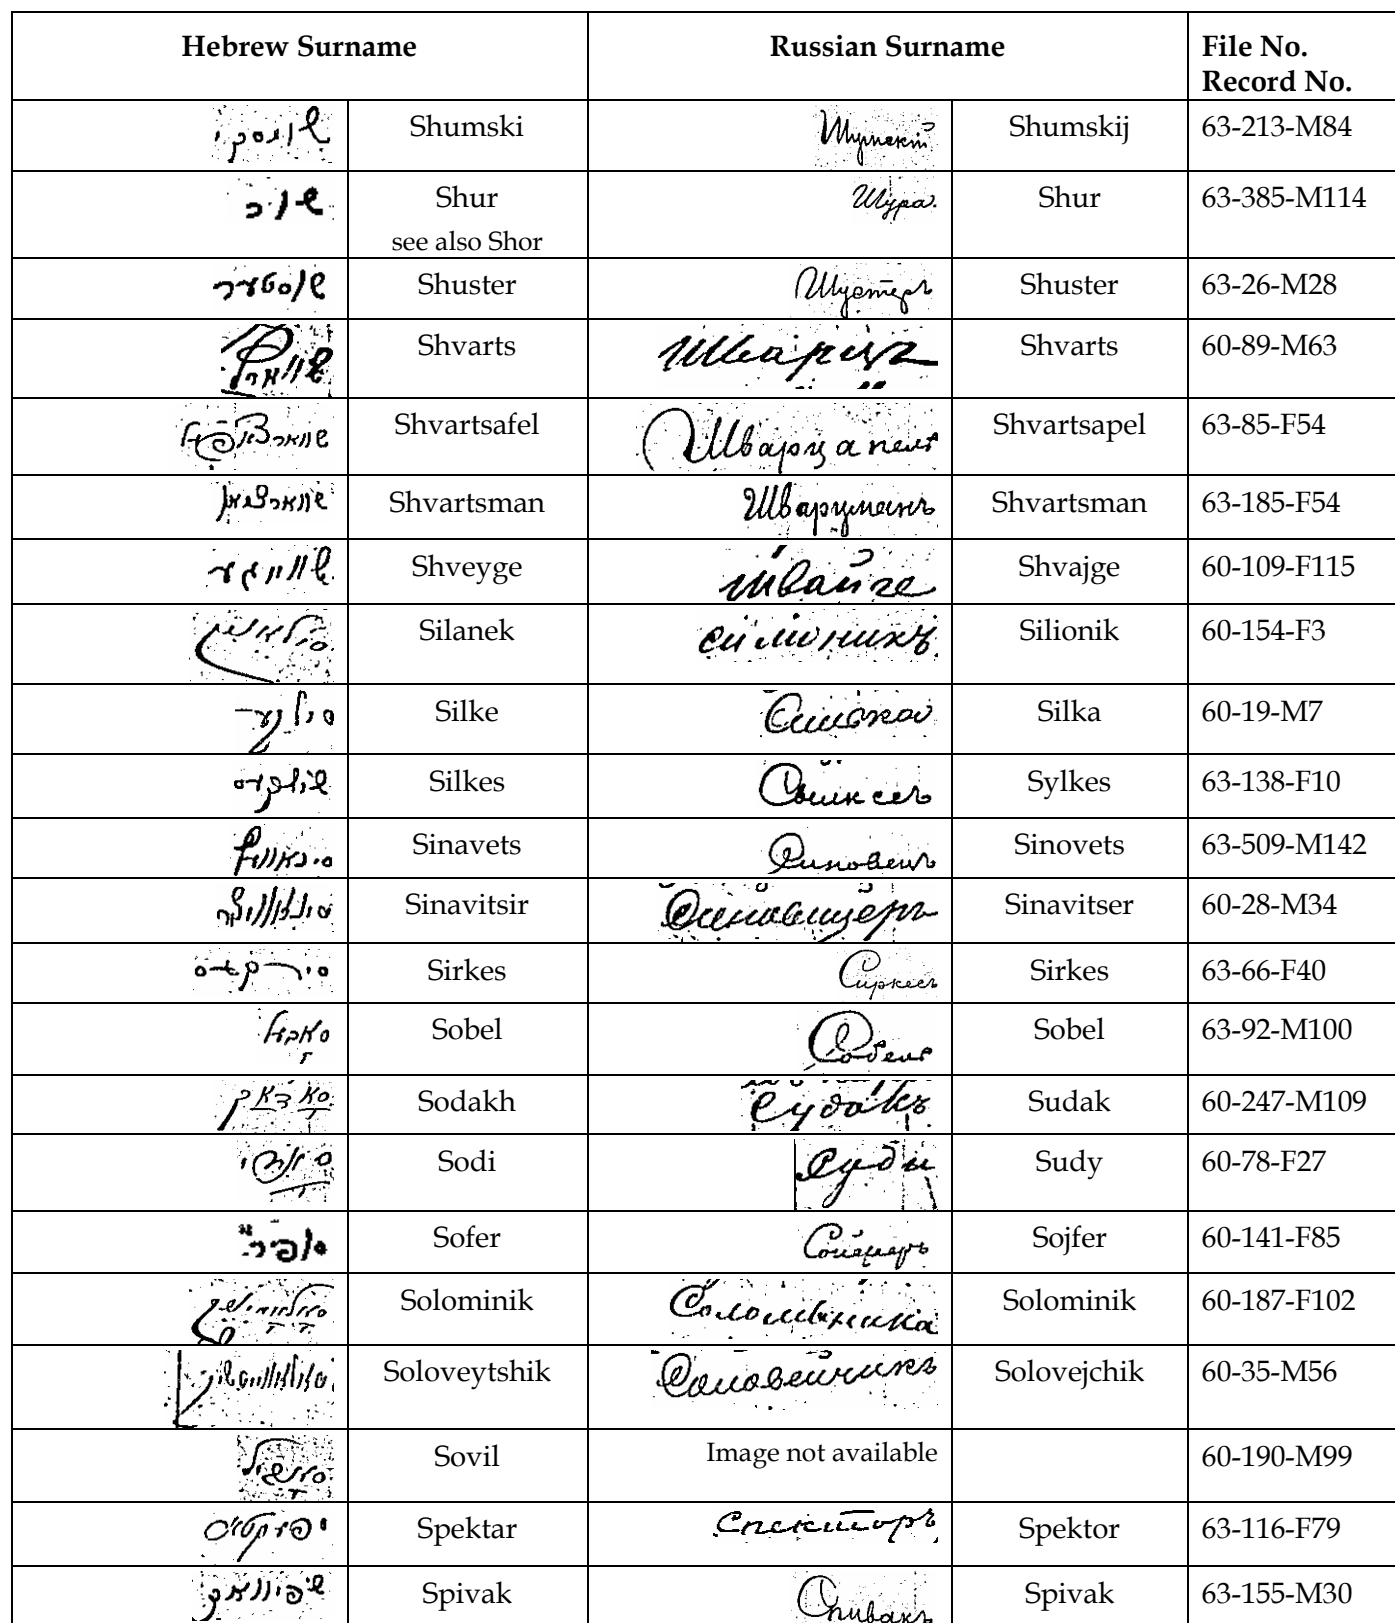 Hebrew Surname Russian Surname File No.
Record No.
שומסקי Shumski Шумскій Shumskij 63-213-M84
שור Shur Шура Shur 63-385-M114
see also Shor
שוסטער Shuster Шустеръ Shuster 63-26-M28
שווארץ Shvarts Шварцъ Shvarts 60-89-M63
Shvartsafel Шварцапель Shvartsapel 63-85-F54
שווארצמאן Shvartsman Шварцманъ Shvartsman 63-185-F54
שווייגע Shveyge Швайге Shvajge 60-109-F115
Silanek Silionik 60-154-F3
Silke Silka 60-19-M7
Silkes Sylkes 63-138-F10
סינאוועץ Sinavets Синовецъ Sinovets 63-509-M142
Sinavitsir Синовицеръ Sinavitser 60-28-M34
סירקעס Sirkes Сиркесъ Sirkes 63-66-F40
Sobel Собель Sobel 63-92-M100
Sodakh Судакъ Sudak 60-247-M109
Sodi Суды Sudy 60-78-F27
Sofer Сойферъ Sojfer 60-141-F85
Solominik Solominik 60-187-F102
Soloveytshik Соловейчикъ Solovejchik 60-35-M56
Sovil Image not available 60-190-M99
Spektar Спекторъ Spektor 63-116-F79
Spivak Спивакъ Spivak 63-155-M30